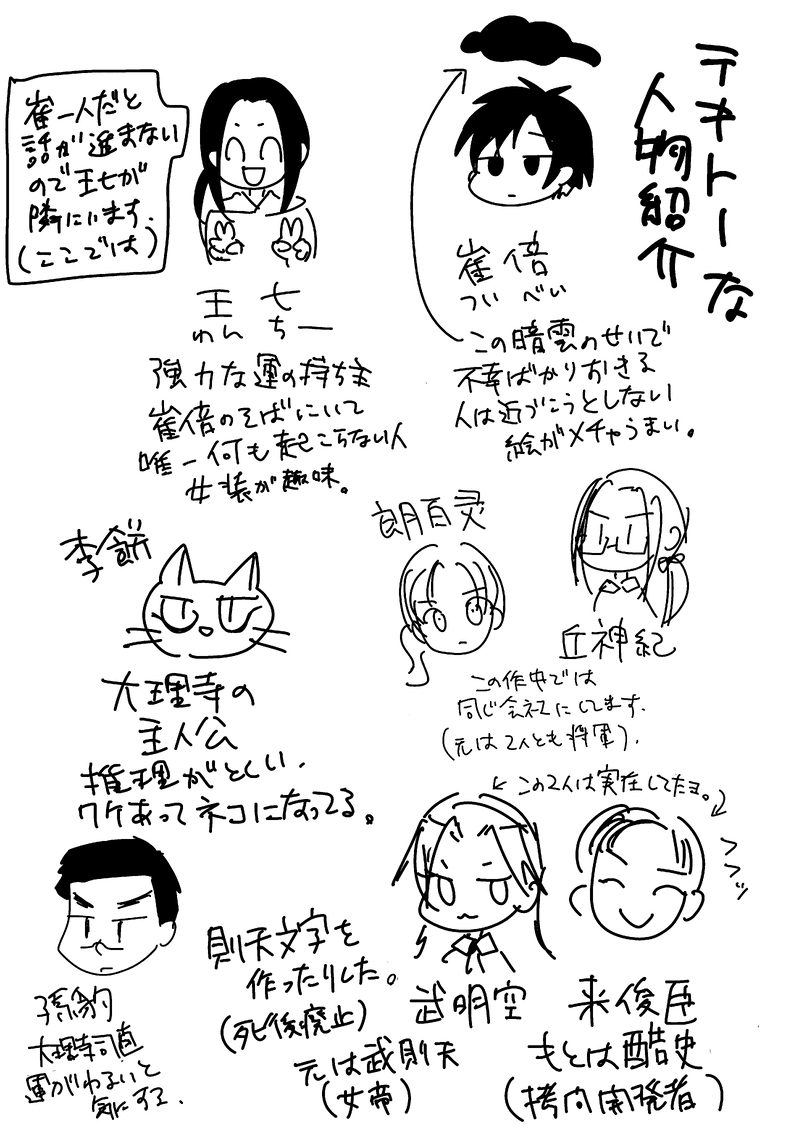 テキトーな
人物紹介
崔倍
つい べい
この暗雲のせいで
不幸ばかりおきる
人は近づこうとしない
絵がメチャうまい。
崔一人だと
話が進まない
ので王七が
隣にいます.
(ここでは)
王七
わん ちー
強力な運の持ち主
崔倍のそばにいて
唯一何も起こらない人
女装が趣味。
李餅
大理寺の
主人公
推理がとくい.
ワケあってネコになってる。
朗百灵
丘神紀
この作中では
同じ会社にしてます.
(元は2人とも将軍).
この2人は実在してたヨ。
孫豹
大理寺司直
運がわるいと
気にする.
則天文字を
作ったりした。
(死後廃止)
武明空
元は武則天
(女帝)
フフッ
来俊臣
もとは酷史
(拷問開発者)